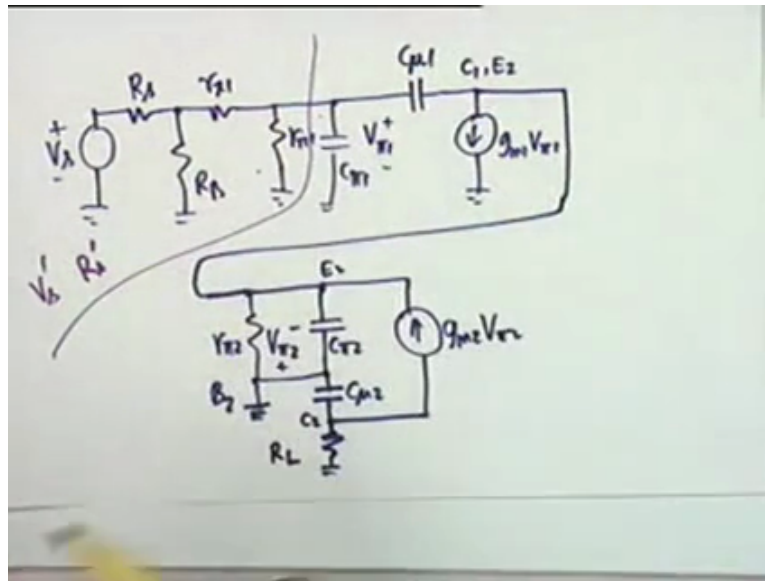 Rs rx1 Cμ1 C1, E2
+ Vs - rπ1 Cπ1 Vπ1 + - gm1Vπ1
RB
Vs' Rs'
E2
rπ2 Vπ2 - + Cπ2 gm2Vπ2
B2 Cμ2
C2
RL